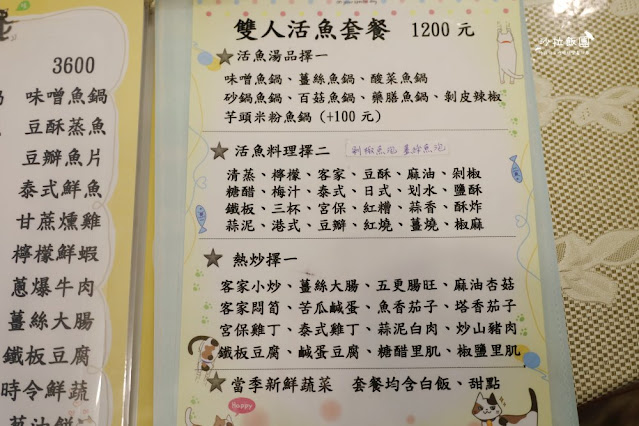 3600
味噌魚鍋
豆酥蒸魚
豆瓣魚片
泰式鮮魚
甘蔗燻雞
檸檬鮮蝦
蔥爆牛肉
薑絲大腸
鐵板豆腐
時令鮮蔬
雙人活魚套餐 1200 元
★活魚湯品擇一
味噌魚鍋、薑絲魚鍋、酸菜魚鍋
砂鍋魚鍋、百菇魚鍋、藥膳魚鍋、剝皮辣椒
芋頭米粉魚鍋 (+100 元)
★活魚料理擇二
清蒸、檸檬、客家、豆酥、麻油、剁椒
糖醋、梅汁、泰式、日式、划水、鹽酥
鐵板、三杯、宮保、紅糟、蒜香、酥炸
蒜泥、港式、豆瓣、紅燒、薑燒、椒麻
★ 熱炒擇一
客家小炒、薑絲大腸、五更腸旺、麻油杏菇
客家悶筍、苦瓜鹹蛋、魚香茄子、塔香茄子
宮保雞丁、泰式雞丁、蒜泥白肉、炒山豬肉
鐵板豆腐、鹹蛋豆腐、糖醋里肌、椒鹽里肌
★當季新鮮蔬菜 套餐均含白飯、甜點
Happy